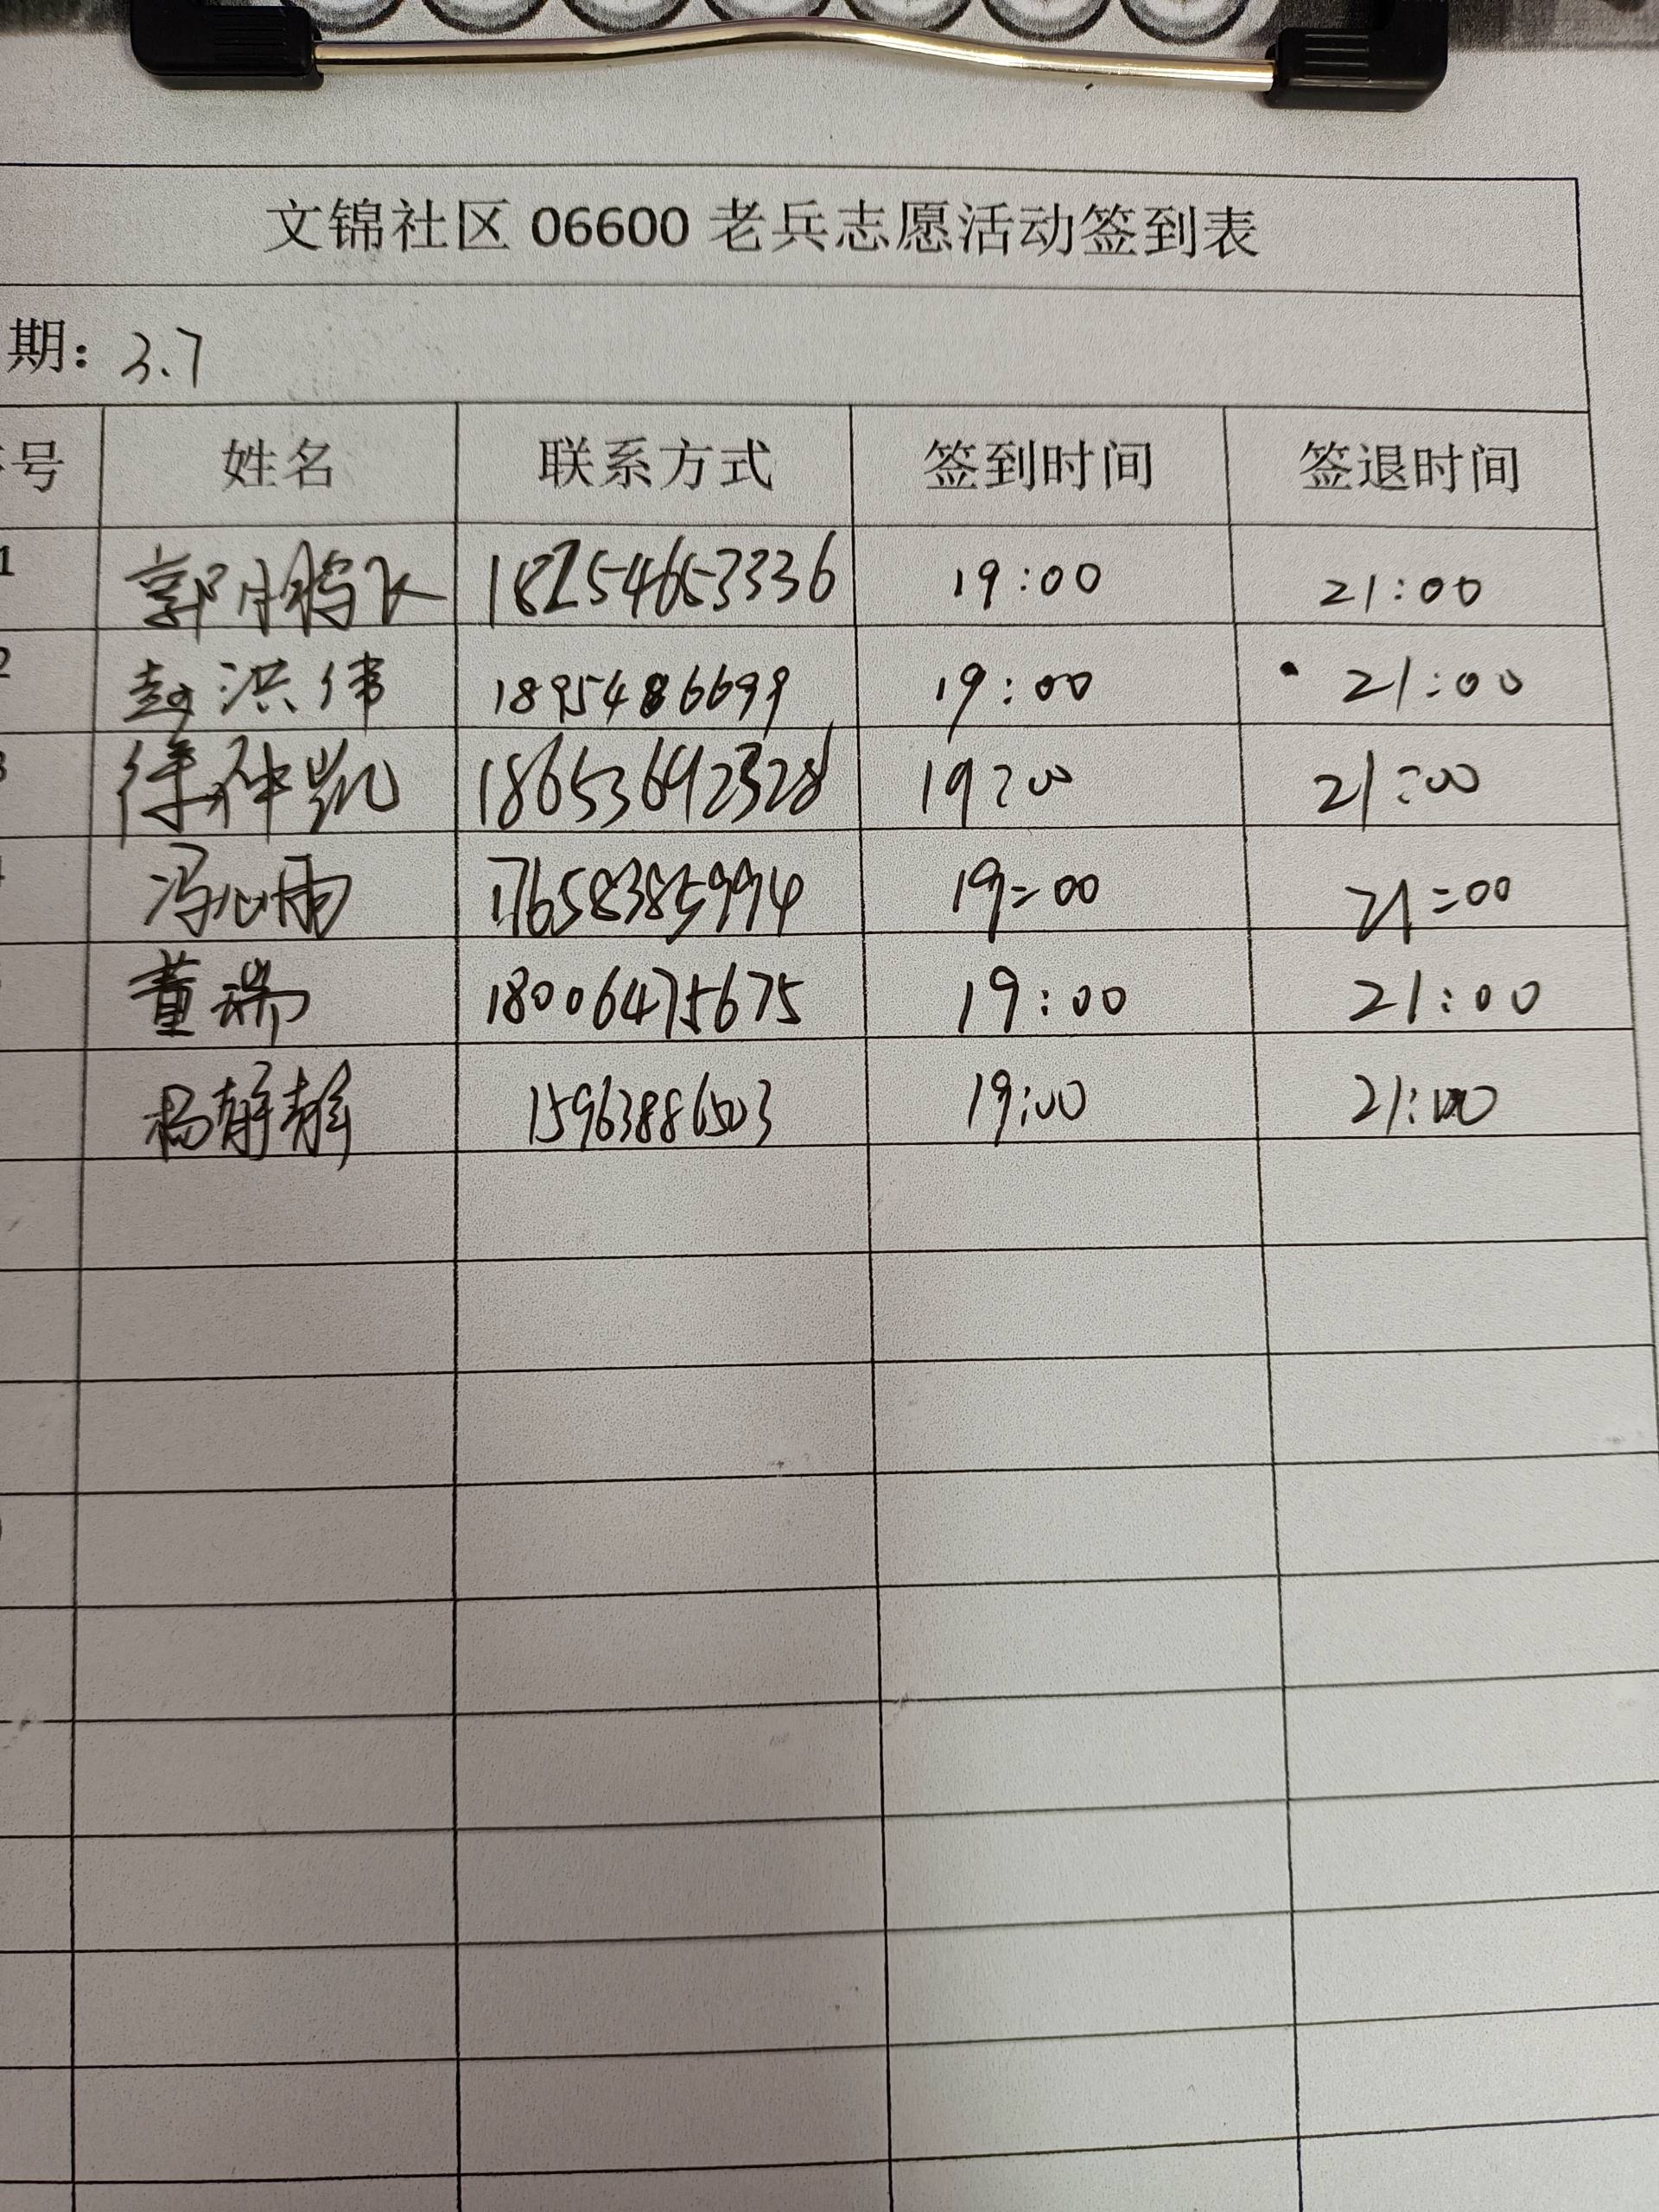 文锦社区 06600 老兵志愿活动签到表
期: 3.7
号 姓名 联系方式 签到时间 签退时间
1 郭鹏飞 18254653336 19:00 21:00
2 赵洪伟 1895486699 19:00 21:00
3 徐仲凯 18653692328 19:00 21:00
冯心雨 17658385994 19:00 21:00
董瑞 18006475675 19:00 21:00
杨静静 15963886503 19:00 21:00